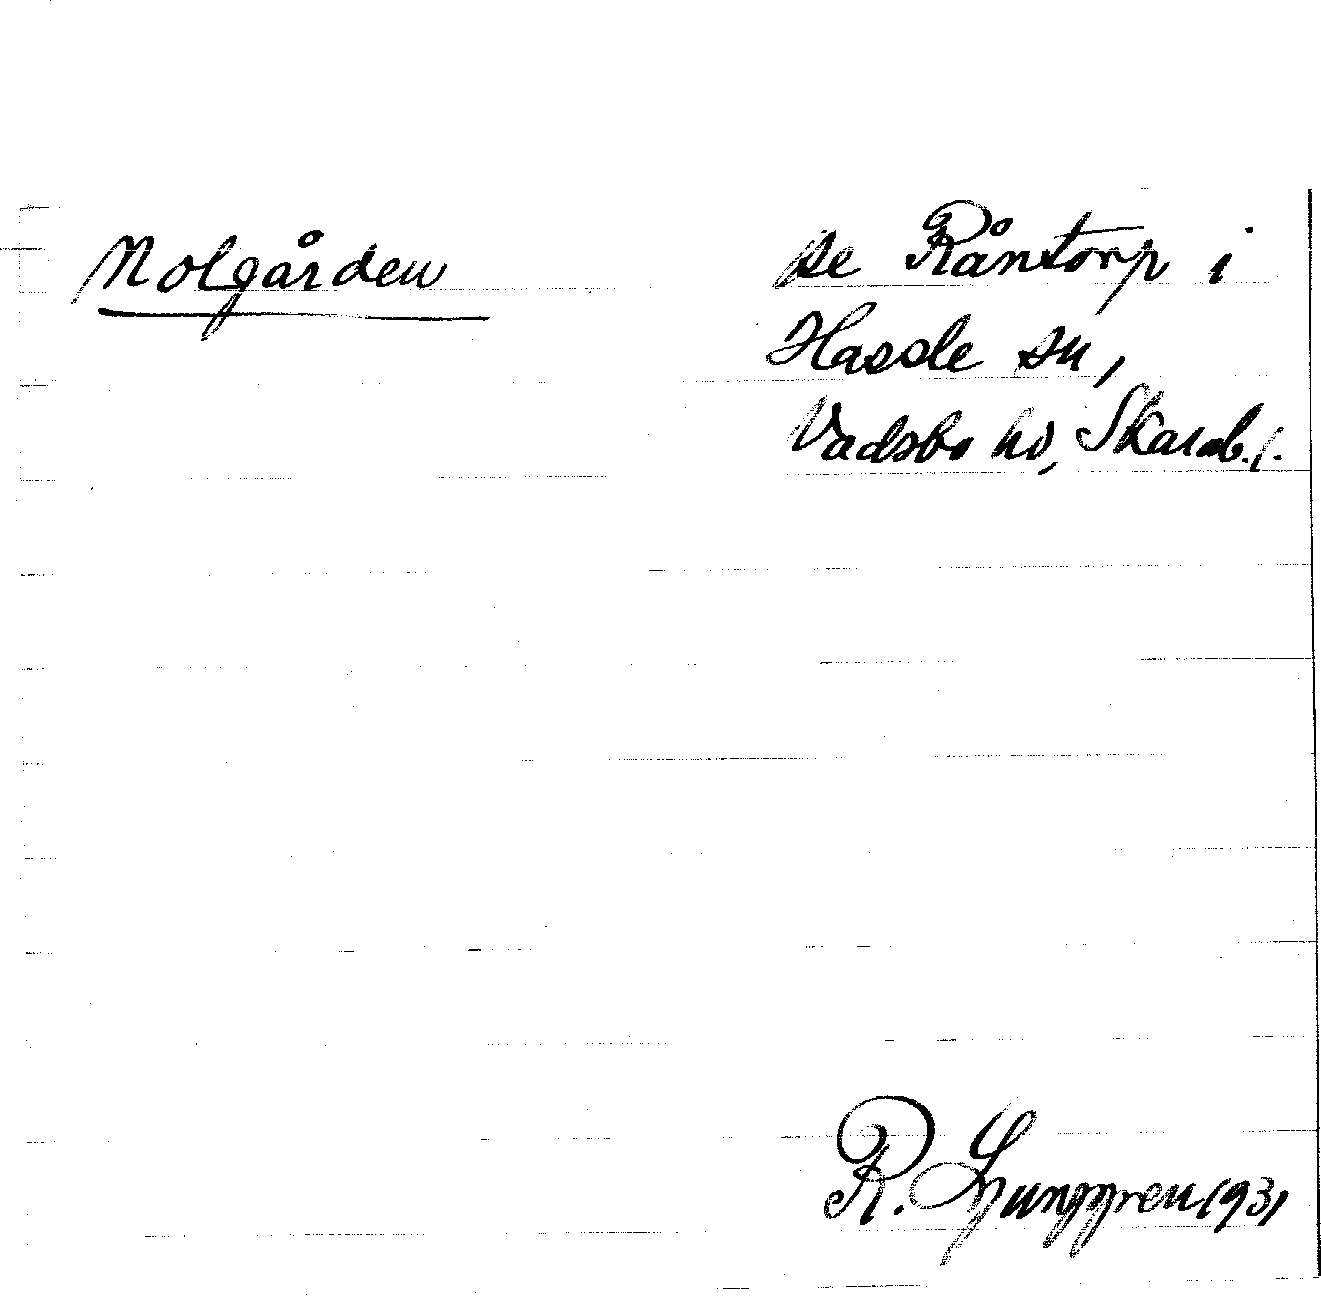 Nolgården
se Råntorp i
Hassle sn,
Vadsbo hd, Skarab. l.
R. Ljunggren 1931